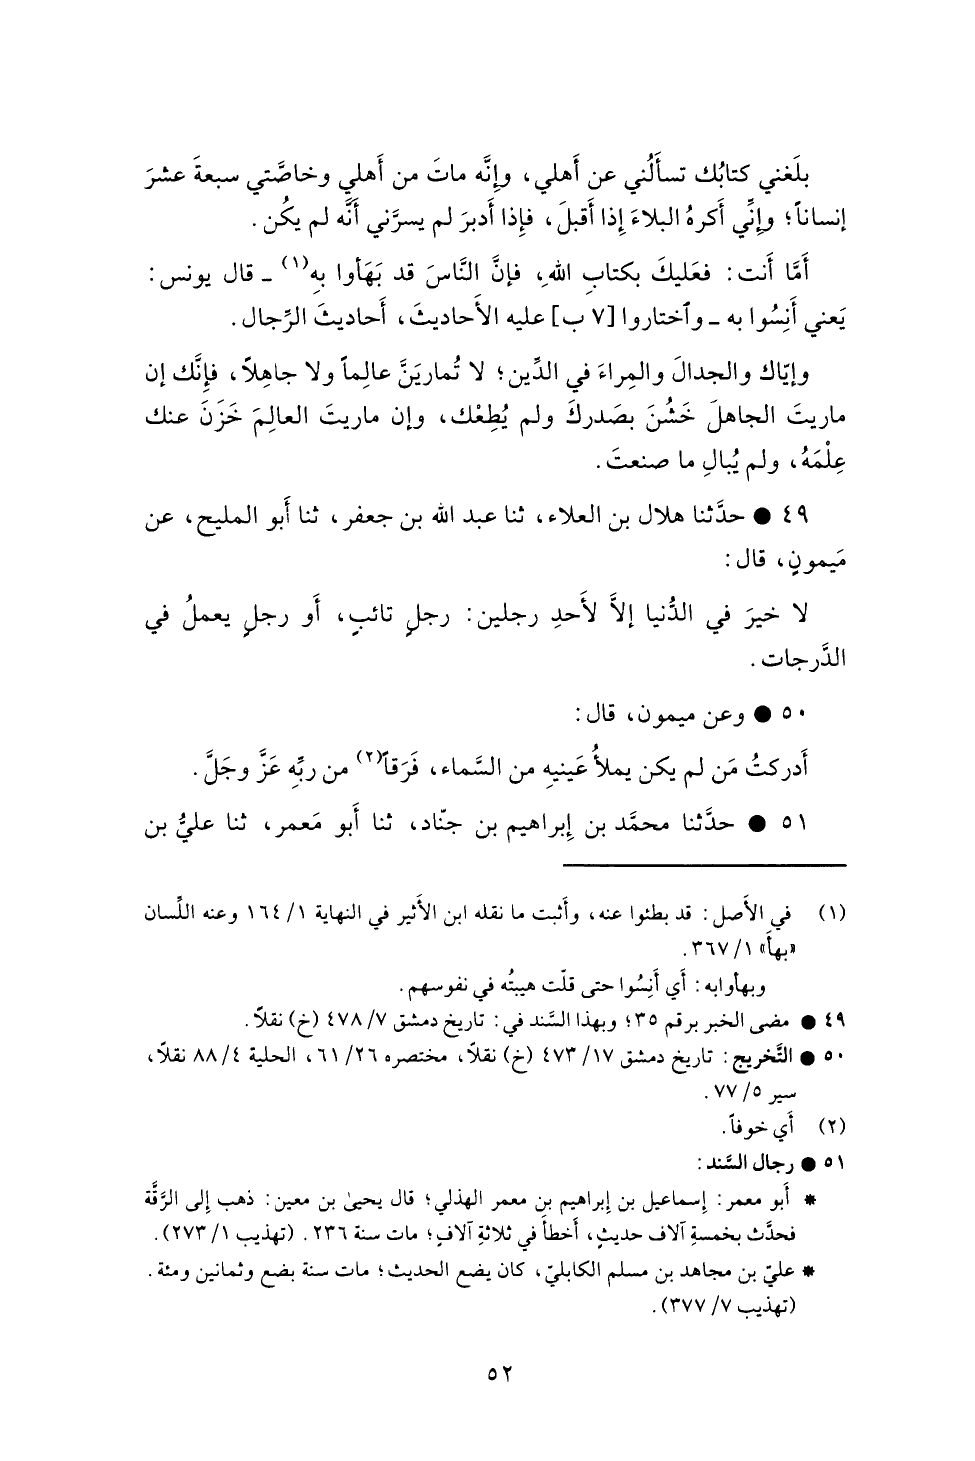 بلَغني كتابُك تسأَلُني عن أَهلي، وإِنَّه ماتَ من أَهلي وخاصَّتي سبعةَ عشرَ
إنساناً؛ وإِنِّي أَكرهُ البلاءَ إِذا أَقبلَ، فإِذا أَدبرَ لم يسرَّني أَنَّه لم يكُن.
أَمَّا أَنت: فعَليكَ بكتابِ اللهِ، فإنَّ النَّاسَ قد بَهَأوا بهِ(١) ـ قال يونس:
يَعني أَنِسُوا به ـ وٱختاروا [٧ ب] عليه الأَحاديثَ، أَحاديثَ الرِّجال.
وإيّاك والجدالَ والمِراءَ في الدِّين؛ لا تُماريَنَّ عالِماً ولا جاهِلاً، فإِنَّك إن
ماريتَ الجاهلَ خَشُنَ بصَدركَ ولم يُطِعْك، وإن ماريتَ العالِمَ خَزَنَ عنك
عِلْمَهُ، ولم يُبالِ ما صنعتَ.
٤٩ ● حدَّثنا هلال بن العلاء، ثنا عبد الله بن جعفر، ثنا أَبو المليح، عن
مَيمونٍ، قال:
لا خيرَ في الدُّنيا إلاَّ لأَحدِ رجلين: رجلٍ تائبٍ، أَو رجلٍ يعملُ في
الدَّرجات.
٥٠ ● وعن ميمون، قال:
أَدركتُ مَن لم يكن يملأُ عَينيهِ من السَّماء، فَرَقاً(٢) من ربِّه عَزَّ وجَلَّ.
٥١ ● حدَّثنا محمَّد بن إِبراهيم بن جنّاد، ثنا أَبو مَعمر، ثنا عليُّ بن
(١) في الأَصل: قد بطئوا عنه، وأَثبت ما نقله ابن الأَثير في النهاية ١/ ١٦٤ وعنه اللِّسان
«بهأ» ١/ ٣٦٧.
وبهأوابه: أَي أَنِسُوا حتى قلّت هيبتُه في نفوسهم.
٤٩ ● مضى الخبر برقم ٣٥؛ وبهذا السَّند في: تاريخ دمشق ٧/ ٤٧٨ (خ) نقلاً.
٥٠ ● التَّخريج: تاريخ دمشق ١٧/ ٤٧٣ (خ) نقلاً، مختصره ٢٦/ ٦١، الحلية ٤/ ٨٨ نقلاً،
سير ٥/ ٧٧.
(٢) أَي خوفاً.
٥١ ● رجال السَّند:
* أَبو معمر: إسماعيل بن إبراهيم بن معمر الهذلي؛ قال يحيىٰ بن معين: ذهب إلى الرَّقَّة
فحدَّث بخمسةِ آلاف حديثٍ، أَخطأَ في ثلاثةِ آلافٍ؛ مات سنة ٢٣٦. (تهذيب ١/ ٢٧٣).
* عليّ بن مجاهد بن مسلم الكابليّ، كان يضع الحديث؛ مات سنة بضع وثمانين ومئة.
(تهذيب ٧/ ٣٧٧).
٥٢